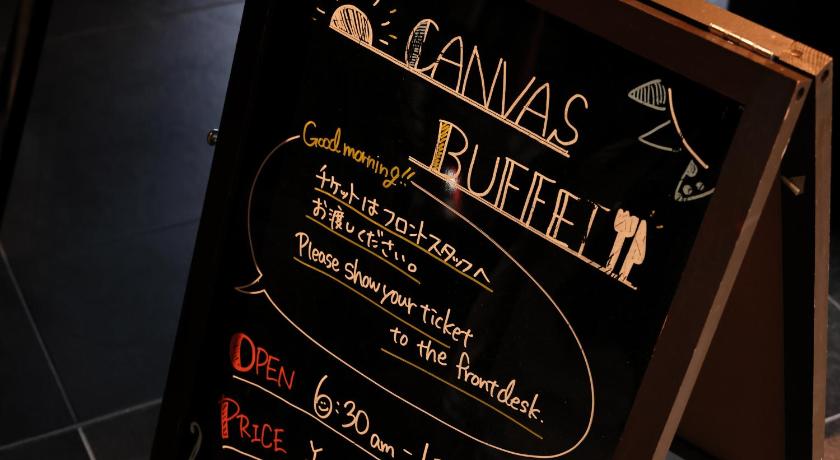 CANVAS
BUFFET
Good morning!!
チケットはフロントスタッフへ
お渡しください。
Please show your ticket
to the front desk.
OPEN 6:30am -
PRICE